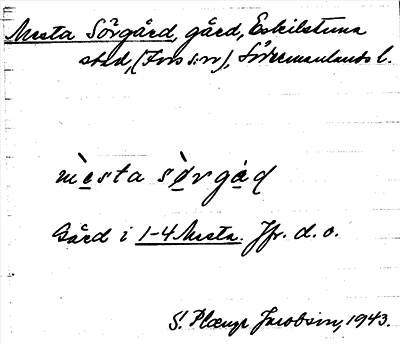 Mesta Sörgård, gård, Eskilstuna
stad, (Fors s:n), Södermanlands l.
mèsta sø̀rgàɖ
Gård i 1-4 Mesta. Jfr. d. o.
S. Plængr Jacobson, 1943.